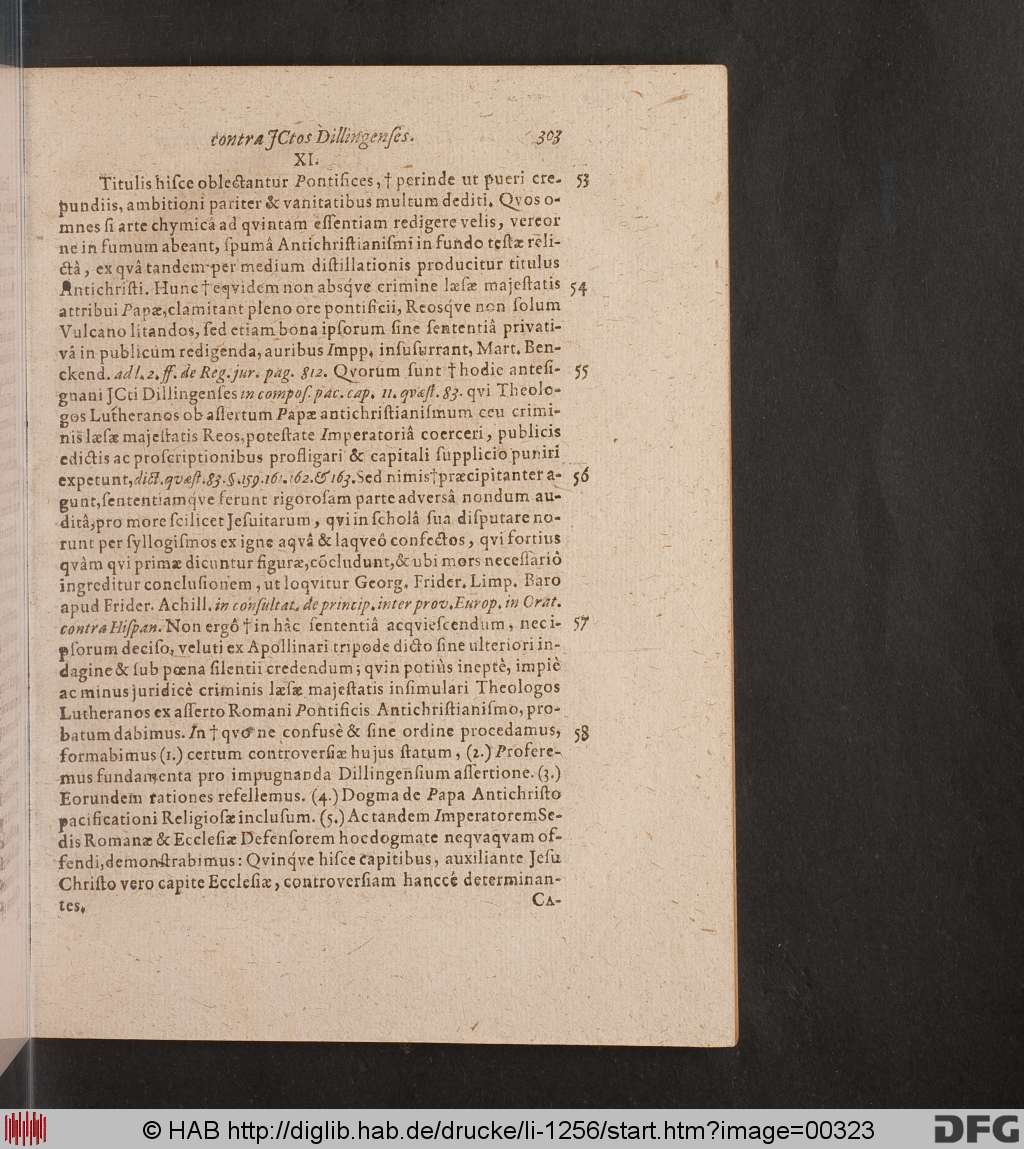 contra JCtos Dillingenſes. 303
XI.
Titulis hiſce oblectantur Pontifices, † perinde ut pueri cre- 53
pundiis, ambitioni pariter & vanitatibus multum dediti. Qvos o-
mnes ſi arte chymicâ ad qvintam eſſentiam redigere velis, vereor
ne in fumum abeant, ſpumâ Antichriſtianiſmi in fundo teſtæ reli-
ctâ, ex qvâ tandem per medium diſtillationis producitur titulus
Antichriſti. Hunc † eqvidem non absqve crimine læſæ majeſtatis 54
attribui Papæ, clamitant pleno ore pontificii, Reosqve non ſolum
Vulcano litandos, ſed etiam bona ipſorum ſine ſententiâ privati-
vâ in publicum redigenda, auribus Impp. inſuſurrant, Mart. Ben-
ckend. ad l. 2. ff. de Reg. jur. pag. 812. Qvorum ſunt † hodie anteſi- 55
gnani JCti Dillingenſes in compoſ. pac. cap. 11. qvæſt. 83. qvi Theolo-
gos Lutheranos ob aſſertum Papæ antichriſtianiſmum ceu crimi-
nis læſæ majeſtatis Reos, poteſtate Imperatoriâ coerceri, publicis
edictis ac proſcriptionibus profligari & capitali ſupplicio puniri
expetunt, dict. qvæſt. 83. §. 159. 161. 162. & 163. Sed nimis † præcipitanter a- 56
gunt, ſententiamqve ferunt rigoroſam parte adversâ nondum au-
ditâ, pro more ſcilicet Jeſuitarum, qvi in ſcholâ ſua diſputare no-
runt per ſyllogiſmos ex igne aqvâ & laqveô confectos, qvi fortius
qvâm qvi primæ dicuntur figuræ, cõcludunt, & ubi mors neceſſariô
ingreditur concluſionem, ut loqvitur Georg. Frider. Limp. Baro
apud Frider. Achill. in conſultat. de princip. inter prov. Europ. in Orat.
contra Hiſpan. Non ergô † in hâc ſententiâ acqvieſcendum, nec i- 57
pſorum deciſo, veluti ex Apollinari tripode dicto ſine ulteriori in-
dagine & ſub pœna ſilentii credendum; qvin potiùs ineptè, impiè
ac minus juridicè criminis læſæ majeſtatis inſimulari Theologos
Lutheranos ex aſſerto Romani Pontificis Antichriſtianiſmo, pro-
batum dabimus. In † qvo ne confusè & ſine ordine procedamus, 58
formabimus (1.) certum controverſiæ hujus ſtatum, (2.) Profere-
mus fundamenta pro impugnanda Dillingenſium aſſertione. (3.)
Eorundem rationes refellemus. (4.) Dogma de Papa Antichriſto
pacificationi Religioſæ incluſum. (5.) Ac tandem Imperatorem Se-
dis Romanæ & Eccleſiæ Defenſorem hoc dogmate neqvaqvam of-
fendi, demonſtrabimus: Qvinqve hiſce capitibus, auxiliante Jeſu
Chriſto vero capite Eccleſiæ, controverſiam hanccé determinan-
tes. CA-
© HAB http://diglib.hab.de/drucke/li-1256/start.htm?image=00323
DFG